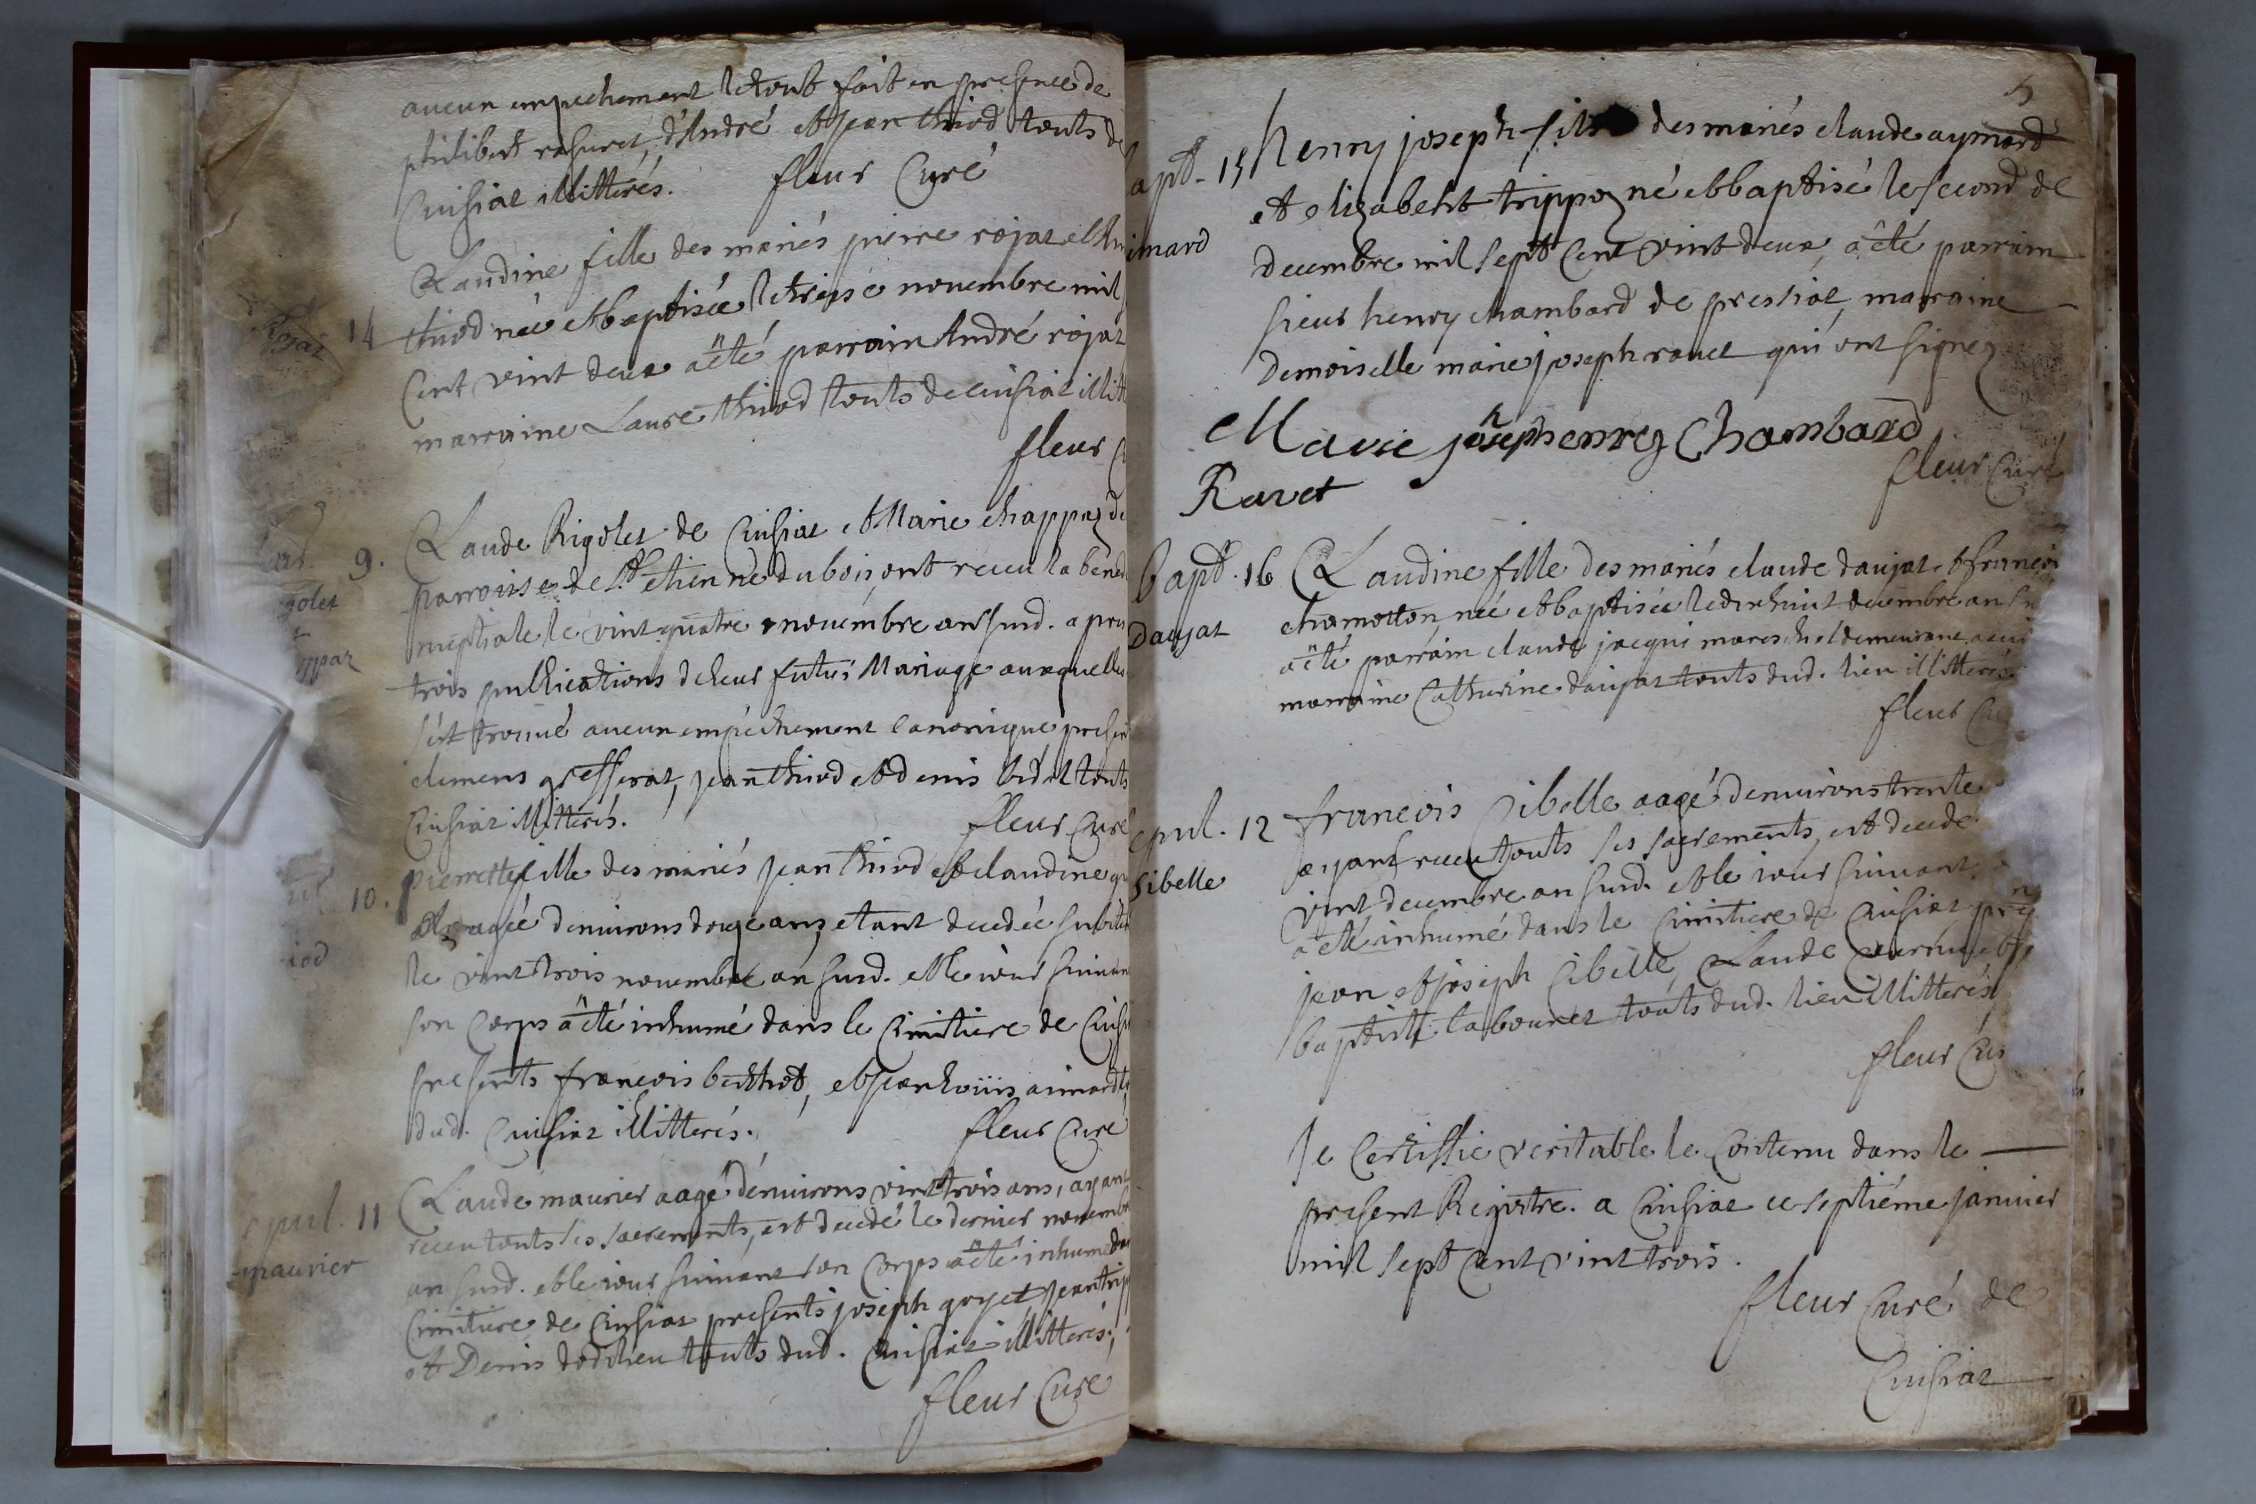 aucun empechement le tout fait en presence de
philibert rasuret, d'André et Jean thiod touts de
Cuisiat illitterés. fleur Curé
Rojat 14 Claudine fille des mariés pierre rojat et
thiod née et baptisée le treisé novembre mil
Cent vint deux a êté parrain André rojat
marraine Laure thiod touts de cuisiat illitt
fleur C
9. Claude Rigolet de Cuisiat et Marie chappaz de
golet parroisse de St etienne du bois, ont receu la bened
nuptiale le vint quatre novembre an susd. apres
ppaz trois publications de leur futur Mariage auxquelles
s'est trouvé aucun empêchement canonique presen
clemens grefferat, Jean thiod et denis bidal touts
Cuisiat illitterés. fleur Curé
10. pierrette fille des mariés jean thiod et claudine
aagé d'environs douze ans, etant decedée subite
iod le vint trois novembre an susd. et le jour suivan
son Corps a êté inhumé dans le Cimitiere de Cuisi
presents francois berthod, et Jean Louis aimard
dud. Cuisiat illitterés. fleur Curé
epul. 11 Claude maurier aagé d'environs vint trois ans, ayant
receu touts ses sacrements, est decedé le dernier novemb
maurier an susd. et le jour suivant son Corps a êté inhumé da
Cimitiere de Cuisiat presents joseph goyet Jean trip
et Denis dodilieu touts dud. Cuisiat illitterés,
fleur Curé
5
apt. 15 henry joseph fils des mariés claude aymard
et elizabeht trippoz né et baptisé le second de
imard decembre mil sept Cent vint deux, a êté parrain
sieur henry chambard de pressiat, marraine
Demoiselle marie joseph ravet qui ont signez
Marie joseph henry Chambard
Ravet fleur Curé
bapt. 16 Claudine fille des mariés claude daujat et francoi
chamotton, née et baptisée le dixhuict decembre an su
Daujat a êté parrain claude jacqui mareschal demeurant a cui
marraine Catherine daujat touts dud. lieu illitterés
fleur Cu
epul. 12 francois Cibelle aagé d'environs trente
sibelle ayant receu touts ses sacrements, est decedé
vint decembre an susd. et le jour suivant
a êté inhumé dans le Cimitiere de Cuisiat
jean et joseph Cibelle, Claude
baptiste labouret touts dud. lieu illitterés
fleur Cur
Je Certiffie veritable le Contenu dans le
present Registre. a Cuisiat ce septiéme janvier
mil sept cent vint trois.
fleur Curé de
Cuisiat